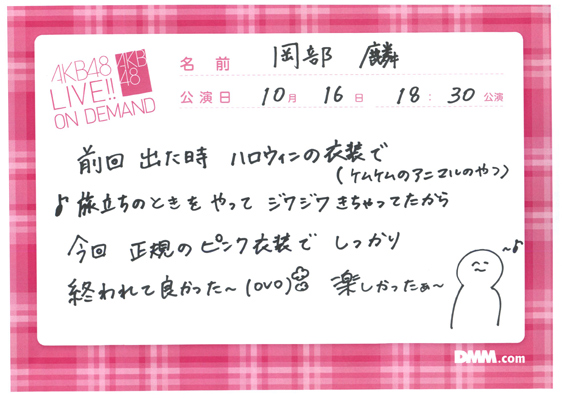 AKB48
LIVE!!
ON DEMAND
AKB
48
名前 岡部 麟
公演日 10月 16日 18:30公演
前回 出た時 ハロウィンの衣装で
(ケムケムのアニマルのやつ)
♪旅立ちのときを やって ジワジワ きちゃってたから
今回 正規の ピンク衣装で しっかり
終われて良かった〜(OVO) 楽しかったぁ〜
〜♪
DMM.com